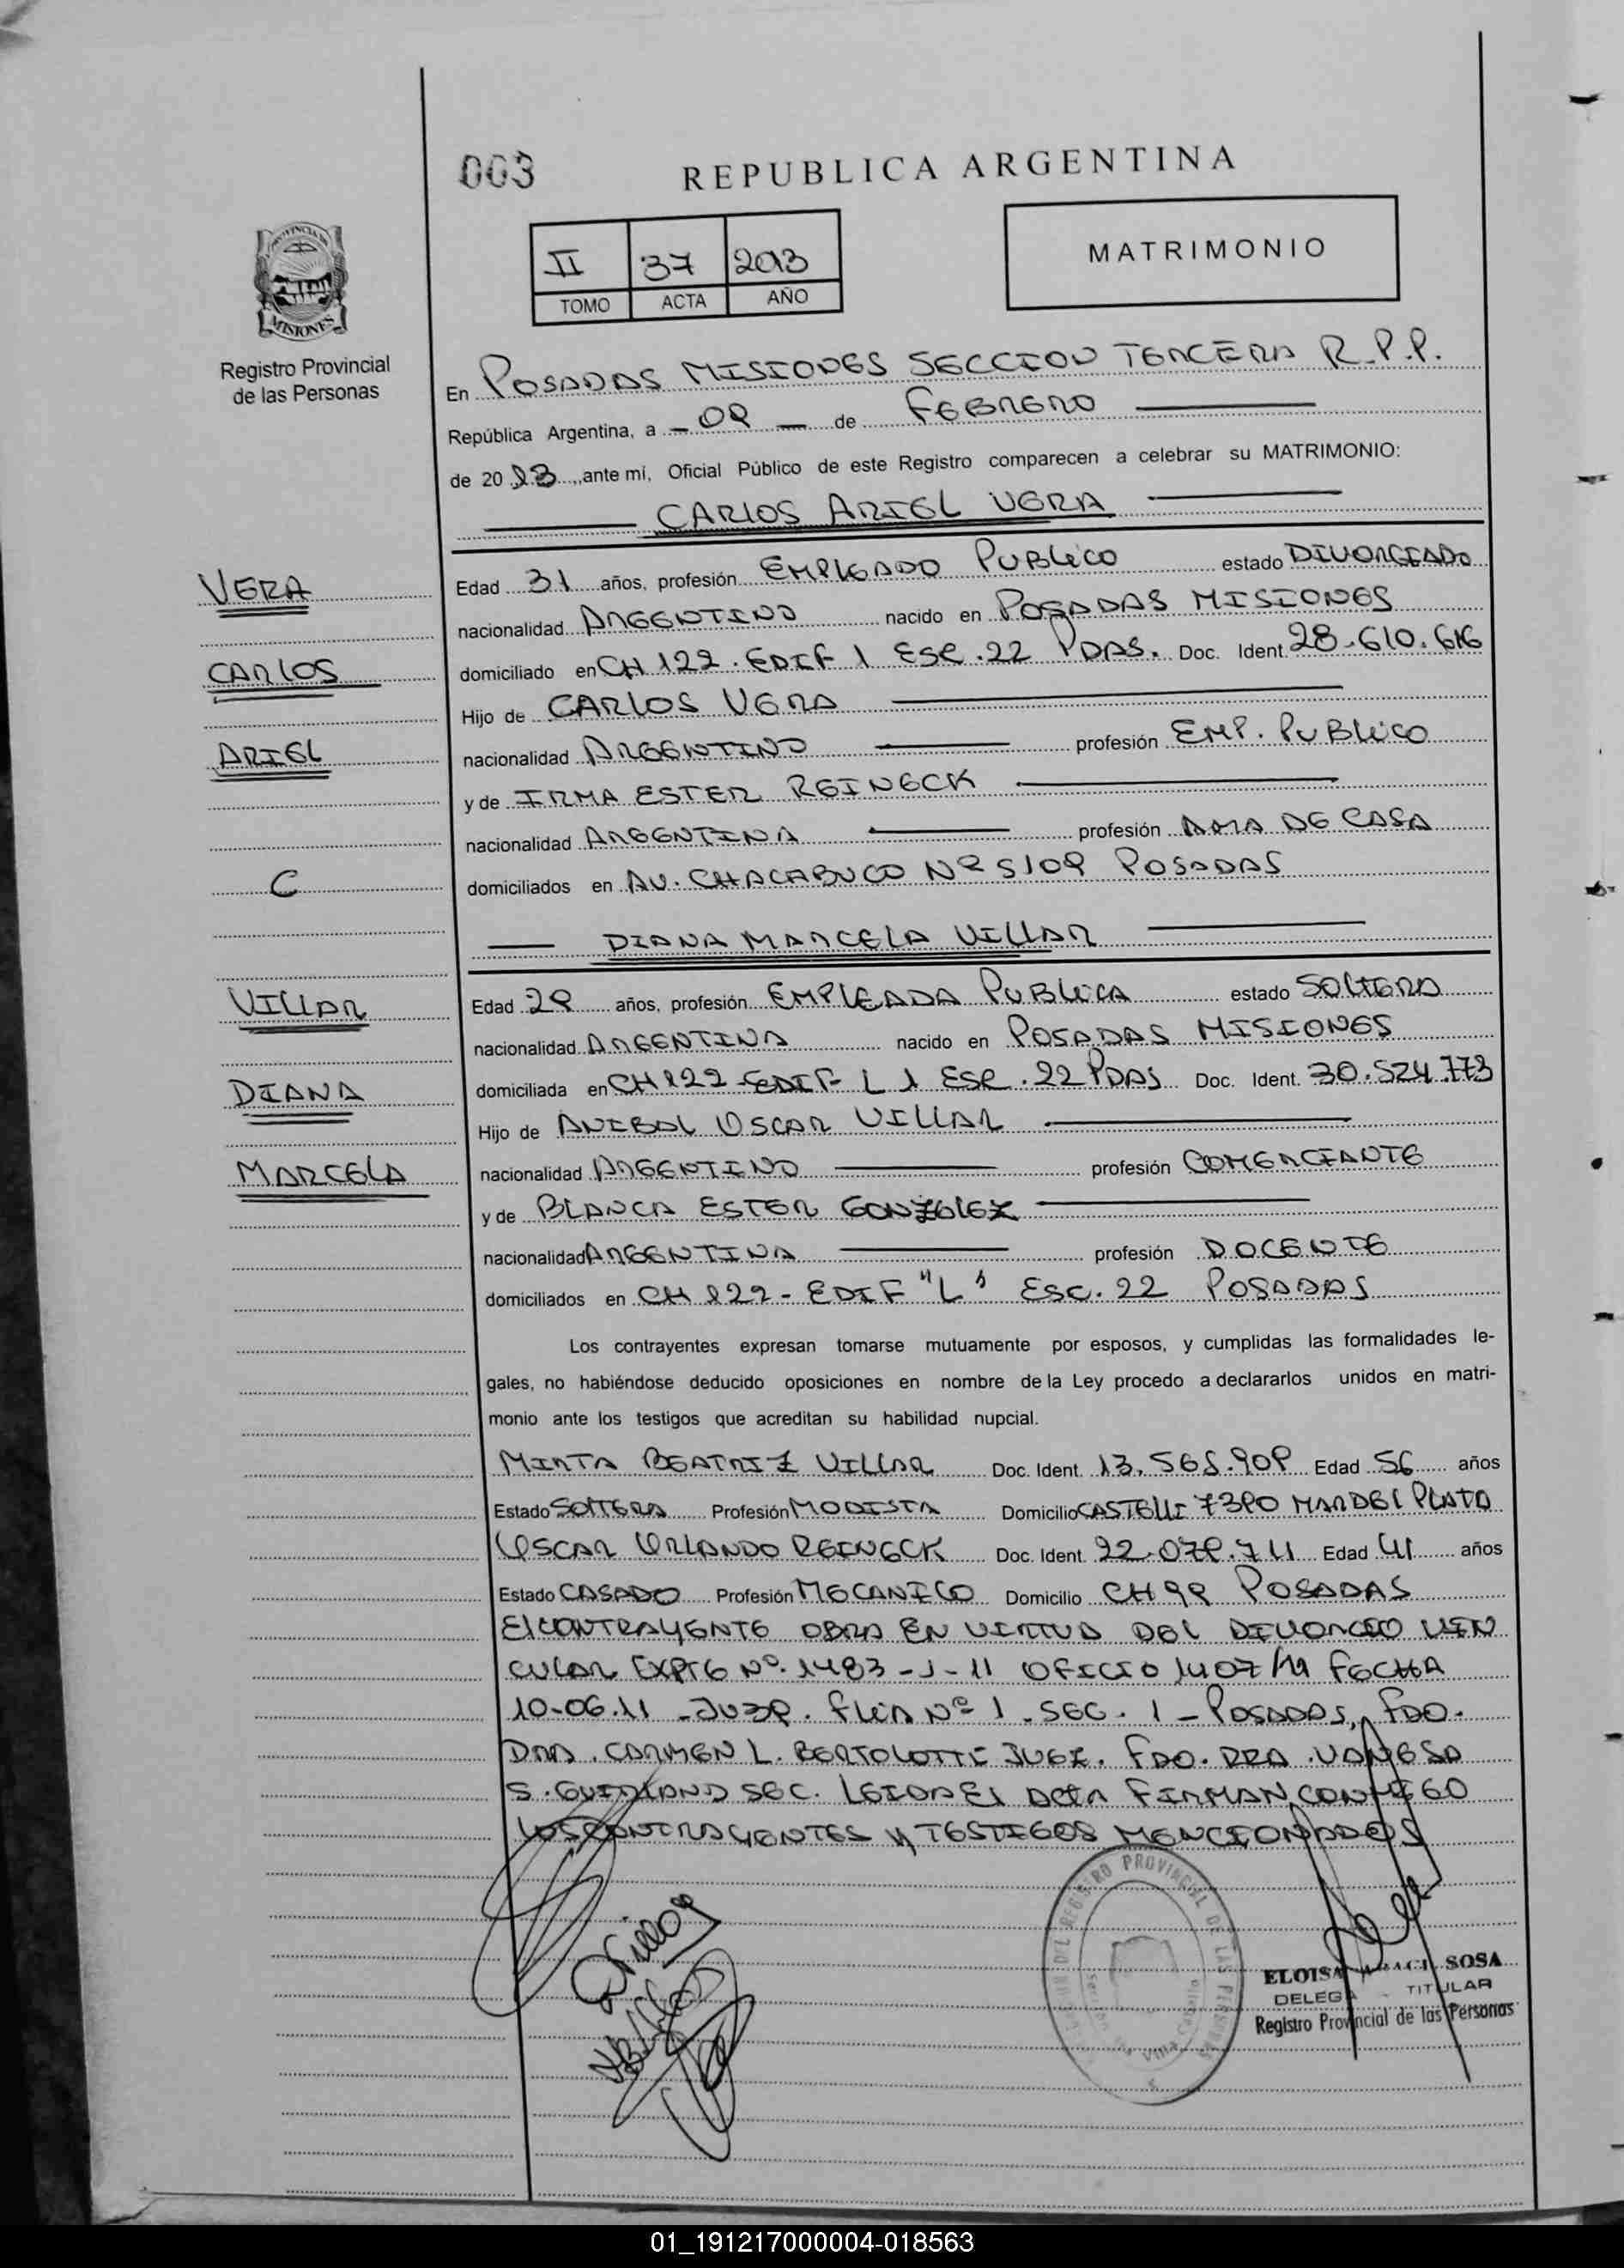 003
REPUBLICA ARGENTINA
II 37 2013
TOMO ACTA AÑO
MATRIMONIO
PROVINCIA DE
MISIONES
Registro Provincial
de las Personas
En POSADAS MISIONES SECCION TERCERA R.P.P.
República Argentina, a - 08 - de FEBRERO
de 20 13, ante mí, Oficial Público de este Registro comparecen a celebrar su MATRIMONIO:
CARLOS ARIEL VERA
VERA
CARLOS
ARIEL
C
Edad 31 años, profesión EMPLEADO PUBLICO estado DIVORCIADO
nacionalidad ARGENTINO nacido en POSADAS MISIONES
domiciliado en CH 122. EDIF 1 ESC. 22 PDAS. Doc. Ident. 28.610.616
Hijo de CARLOS VERA
nacionalidad ARGENTINO profesión EMP. PUBLICO
y de IRMA ESTER REINECK
nacionalidad ARGENTINA profesión AMA DE CASA
domiciliados en AV. CHACABUCO Nº 5109 POSADAS
DIANA MARCELA VILLAR
VILLAR
DIANA
MARCELA
Edad 28 años, profesión EMPLEADA PUBLICA estado SOLTERA
nacionalidad ARGENTINA nacido en POSADAS MISIONES
domiciliada en CH 122 - EDIF L 1 ESC. 22 PDAS Doc. Ident. 30.524.773
Hijo de ANIBAL OSCAR VILLAR
nacionalidad ARGENTINO profesión COMERCIANTE
y de BLANCA ESTER GONZALEZ
nacionalidad ARGENTINA profesión DOCENTE
domiciliados en CH 122 - EDIF "L" ESC. 22 POSADAS
Los contrayentes expresan tomarse mutuamente por esposos, y cumplidas las formalidades le-
gales, no habiéndose deducido oposiciones en nombre de la Ley procedo a declararlos unidos en matri-
monio ante los testigos que acreditan su habilidad nupcial.
MIRTA BEATRIZ VILLAR Doc. Ident. 13.565.908 Edad 56 años
Estado SOLTERA Profesión MODISTA Domicilio CASTELLI 7380 MAR DEL PLATA
OSCAR ORLANDO REINECK Doc. Ident. 22.078.711 Edad 41 años
Estado CASADO Profesión MECANICO Domicilio CH 98 POSADAS
El CONTRAYENTE OBRA EN VIRTUD DEL DIVORCIO VIN
CULAR EXPTE Nº. 1483-J-11 OFICIO 1407/11 FECHA
10-06.11 - JUZG. FLIA Nº 1. SEC. 1 - POSADAS, FDO.
DRA. CARMEN L. BERTOLOTTI JUEZ. FDO. DRA. VANESA
S. SEC. LEIDA El ACTA FIRMAN CONMIGO
LOS CONTRAYENTES Y TESTIGOS MENCIONADOS
REGISTRO PROVINCIAL DE LAS PERSONAS
ELOISA SOSA
TITULAR
Registro Provincial de las Personas
01_191217000004-018563